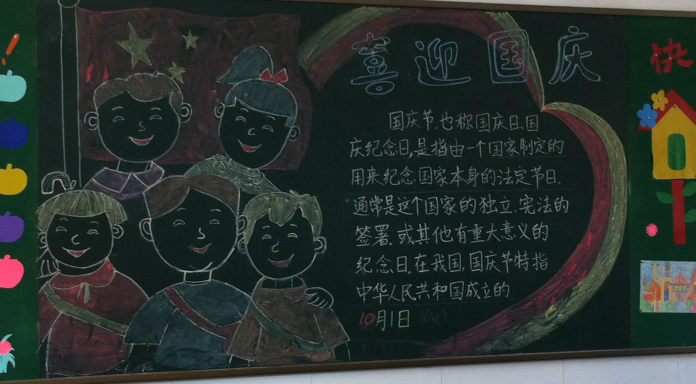 喜迎国庆
国庆节,也称国庆日、国
庆纪念日,是指由一个国家制定的
用来纪念国家本身的法定节日.
通常是这个国家的独立、宪法的
签署、或其他有重大意义的
纪念日.在我国,国庆节特指
中华人民共和国成立的
10月1日
快